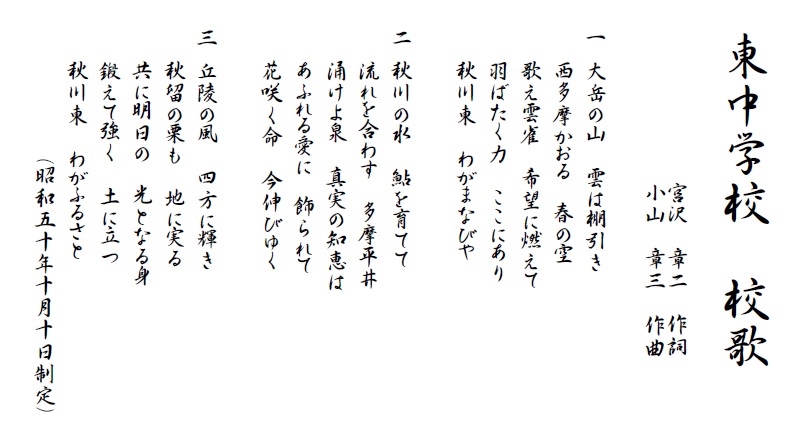 東中学校　校歌
宮沢　章二　作詞
小山　章三　作曲
一　大岳の山　雲は棚引き
西多摩かおる　春の空
歌え雲雀　希望に燃えて
羽ばたく力　ここにあり
秋川東　わがまなびや
二　秋川の水　鮎を育てて
流れを合わす　多摩平井
涌けよ泉　真実の知恵は
あふれる愛に　飾られて
花咲く命　今伸びゆく
三　丘陵の風　四方に輝き
秋留の栗も　地に実る
共に明日の　光となる身
鍛えて強く　土に立つ
秋川東　わがふるさと
（昭和五十年十月十日制定）